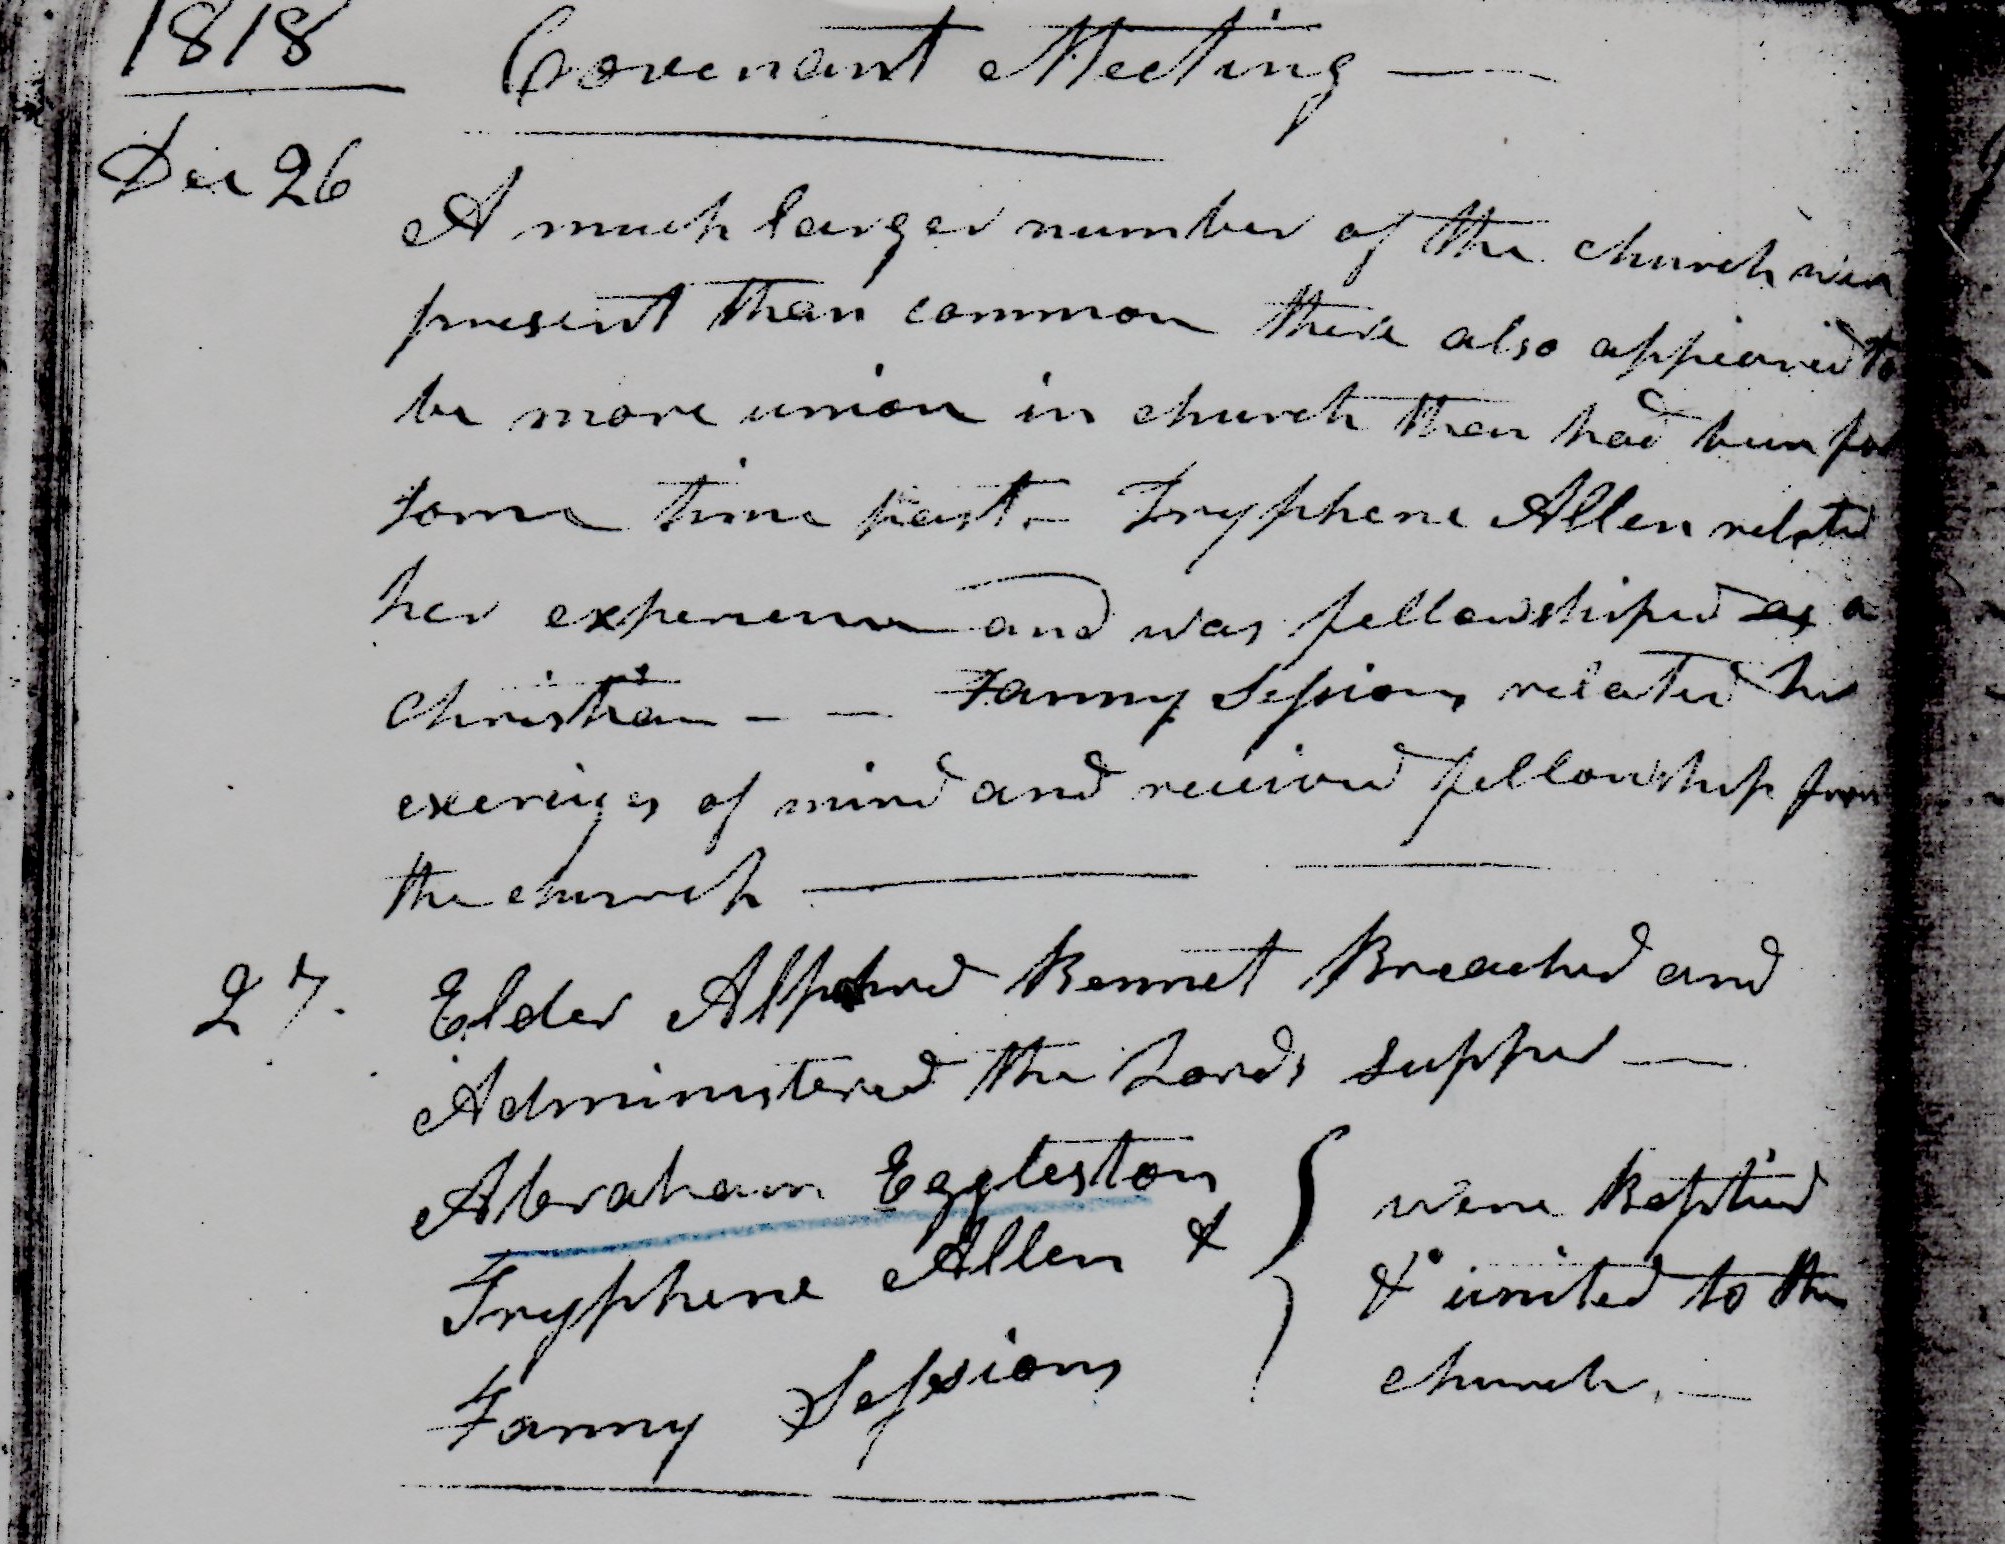 1818 Covenant Meeting —
Dec 26
A much larger number of the church were
present than common there also appeared to
be more union in church than had been for
some time past. – Tryphene Allen related
her experience and was fellowshiped as a
christian – – Fanny Sessions related her
exercises of mind and received fellowship from
the church —— ——
27. Elder Alphred Bennet Preached and
Administered the Lords supper —
Abraham Eggleston
Tryphene Allen &
Fanny Sessions
were Baptised
& united to the
church. —